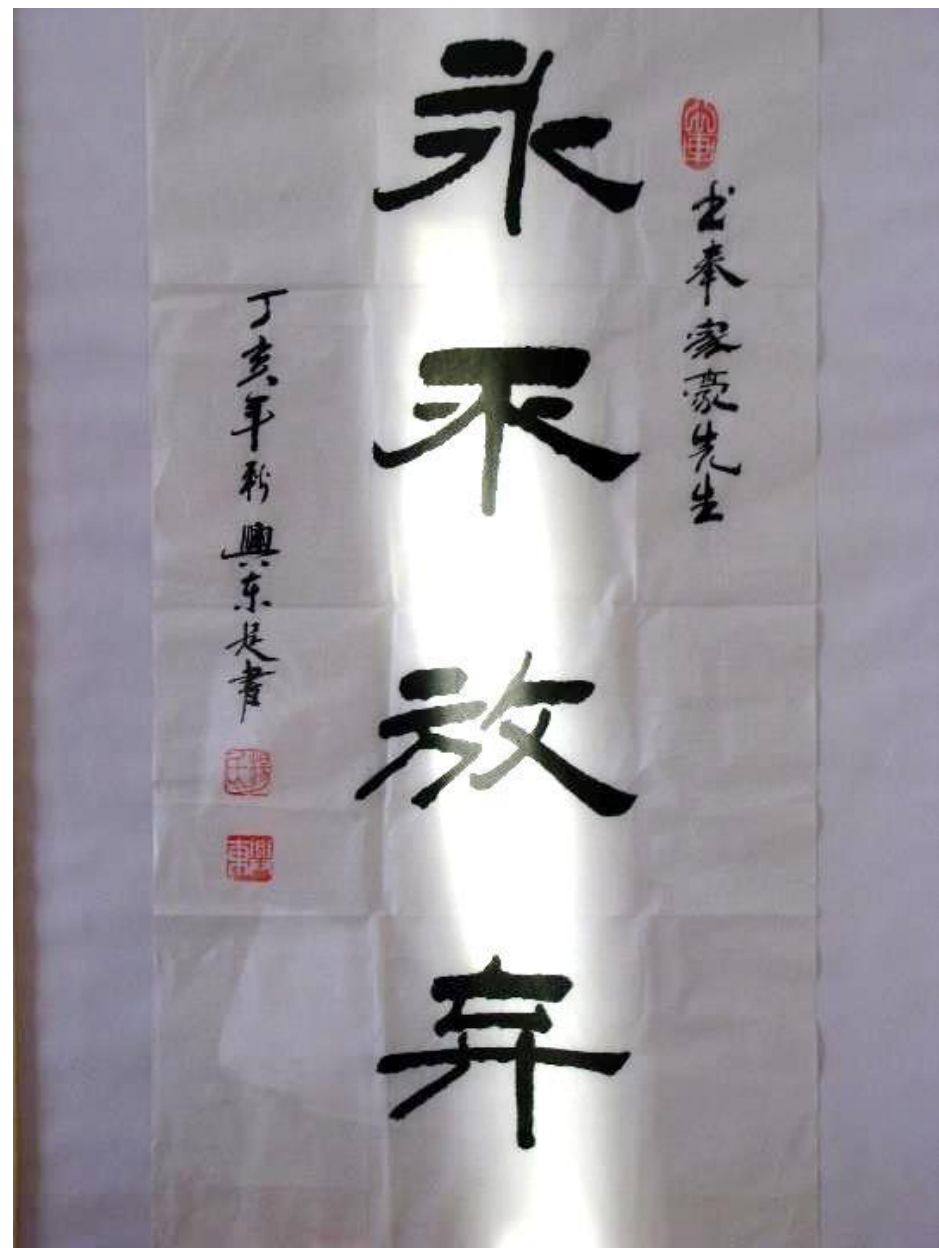 书奉家豪先生
永不放弃
丁亥年秋兴东是书
兴东